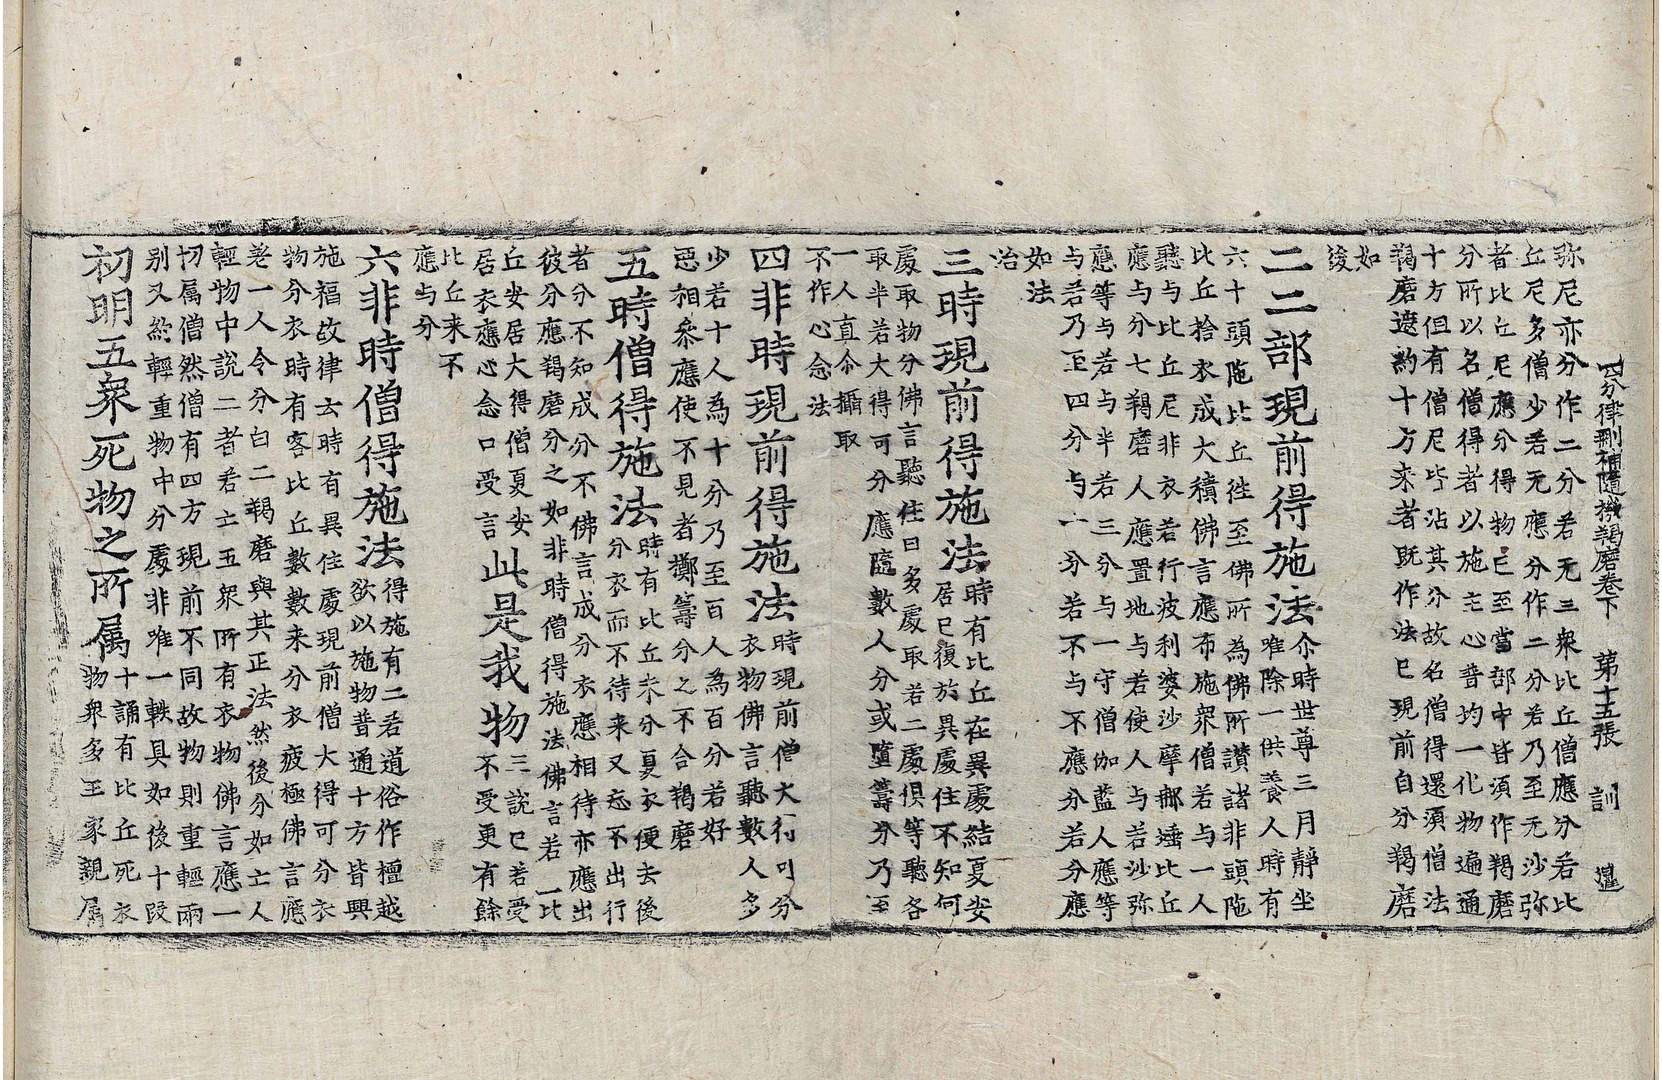 四分律刪補隨機羯磨卷下 第十五張 訓
弥尼亦分作二分若无三衆比丘僧應分若比
丘尼多僧少若无應分作二分若乃至无沙弥
者比丘尼應分得物已至當部中皆須作羯磨
分所以名僧得者以施主心普均一化物遍通
十方但有僧尼皆沾其分故名僧得還須僧法
羯磨遮約十方来者既作法已現前自分羯磨
如
後
二二部現前得施法
尒時世尊三月靜坐
唯除一供養人時有
六十頭陁比丘徃至佛所為佛所讃諸非頭陁
比丘捨衣成大積佛言應布施衆僧若与一人
聽与比丘尼非衣若行波利婆沙摩那埵比丘
應与分七羯磨人應置地与若使人与若沙弥
應等与若与半若三分与一守僧伽藍人應等
与若乃至四分与一分若不与不應分若分應
如法
治
三時現前得施法
時有比丘在異處結夏安
居已復於異處住不知何
處取物分佛言聽住日多處取若二處俱等聽各
取半若大得可分應隨數人分或墮籌分乃至
一人直尒攝取
不作心念法
四非時現前得施法
時現前僧大得可分
衣物佛言聽數人多
少若十人為十分乃至百人為百分若好
惡相叅應使不見者擲籌分之不合羯磨
五時僧得施法
時有比丘未分夏衣便去後
分衣而不待来又忘不出行
者分不知成分不佛言成分衣應相待亦應出
彼分應羯磨分之如非時僧得施法佛言若一比
丘安居大得僧夏安
居衣應心念口受言
此是我物
三說已若受
不受更有餘
比丘来不
應与分
六非時僧得施法
得施有二若道俗作檀越
欲以施物普通十方皆興
施福故律云時有異住處現前僧大得可分衣
物分衣時有客比丘數數来分衣疲極佛言應
差一人令分白二羯磨與其正法然後分如亡人
輕物中說二者若亡五衆所有衣物佛言應一
切属僧然僧有四方現前不同故物則重輕兩
別又約輕重物中分處非唯一軼具如後十段
初明五衆死物之所属
十誦有比丘死衣
物衆多王家親属